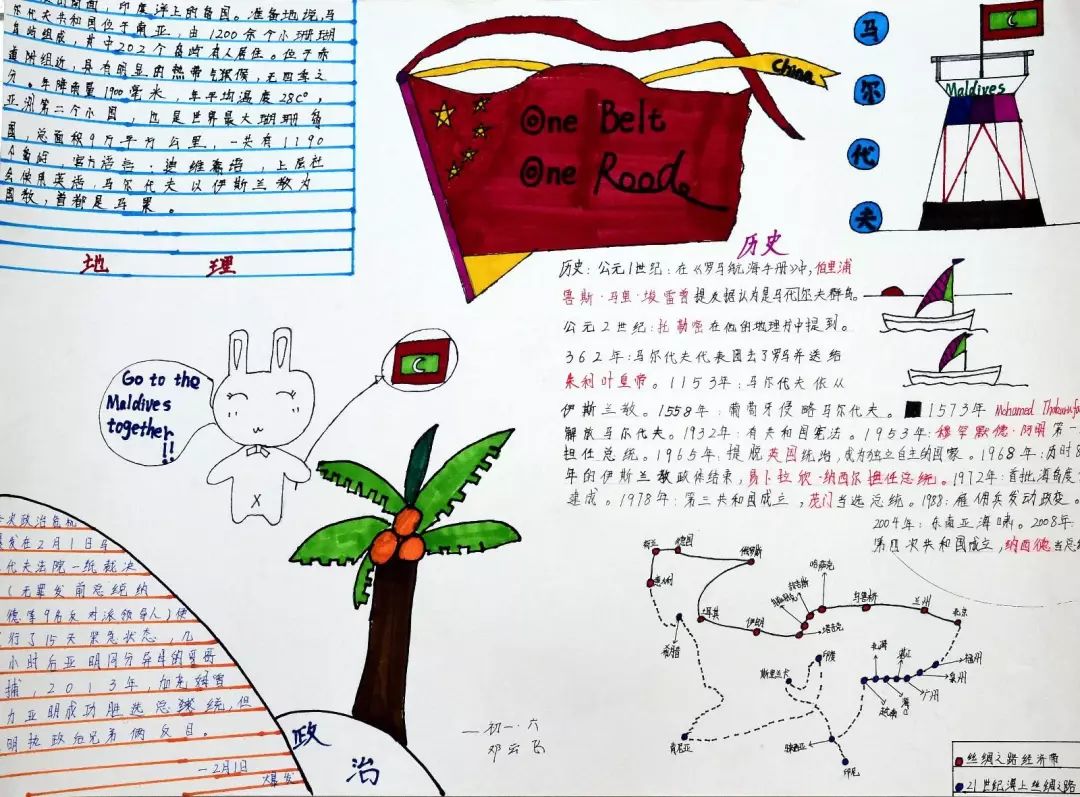 的南面，印度洋上的岛国。准备地说，马
尔代夫共和国位于南亚，由1200余个小珊瑚
岛屿组成，其中202个岛屿有人居住。位于赤
道附近，具有明显的热带气候，无四季之
分。年降雨量1900毫米，年平均温度28C°，
亚洲第二个小国，也是世界最大珊瑚岛
国，总面积9万平方公里，一共有1190
个岛屿，官方语言：迪维希语，上层社
会使用英语，马尔代夫以伊斯兰教为
国教，首都是马累。
地 理
One Belt
One Road
China
马
尔
代
夫
Maldives
历史
历史：公元1世纪：在《罗马航海手册》中，伯里浦
鲁斯·马里·埃雷曾提及据认为是马代尔夫群岛。
公元2世纪：托勒密在他的地理书中提到。
362年：马尔代夫代表团去了罗马并送给
朱利叶皇帝。1153年：马尔代夫依从
伊斯兰教。1558年：葡萄牙侵略马尔代夫。1573年 Mohamed
解放马尔代夫。1932年：有共和国宪法。1953年：穆罕默德·阿明第一
担任总统。1965年，提脱英国统治，成为独立自主的国家。1968年：历时8
年的伊斯兰教政体结束，易卜拉欣·纳西尔担任总统。1972年：首批海岛度
建成。1978年：第三共和国成立，茂门当选总统。1988：雇佣兵发动政变。
2004年：东南亚海啸。2008年：
第四次共和国成立，纳西德当总统
Go to the
Maldives
together
!!
次政治危机
爆发在2月1日马
代夫法院一纸裁决
（无罪发前总统纳
德等9名反对派领导人）使
行了15天紧急状态，几
小时后亚明同父异母的哥哥
捕，2013年，加尧姆曾
力亚明成功胜选总统，但
明执政后兄弟俩反目。
—2月1日
爆发
政
治
初一·六
邓云飞
德国
俄罗斯
土耳其
伊朗
哈萨克
乌鲁木齐
兰州
北京
希腊
肯尼亚
斯里兰卡
印度
北海
湛江
福州
泉州
广州
海口
越南
马来西亚
印尼
丝绸之路经济带
21世纪海上丝绸之路